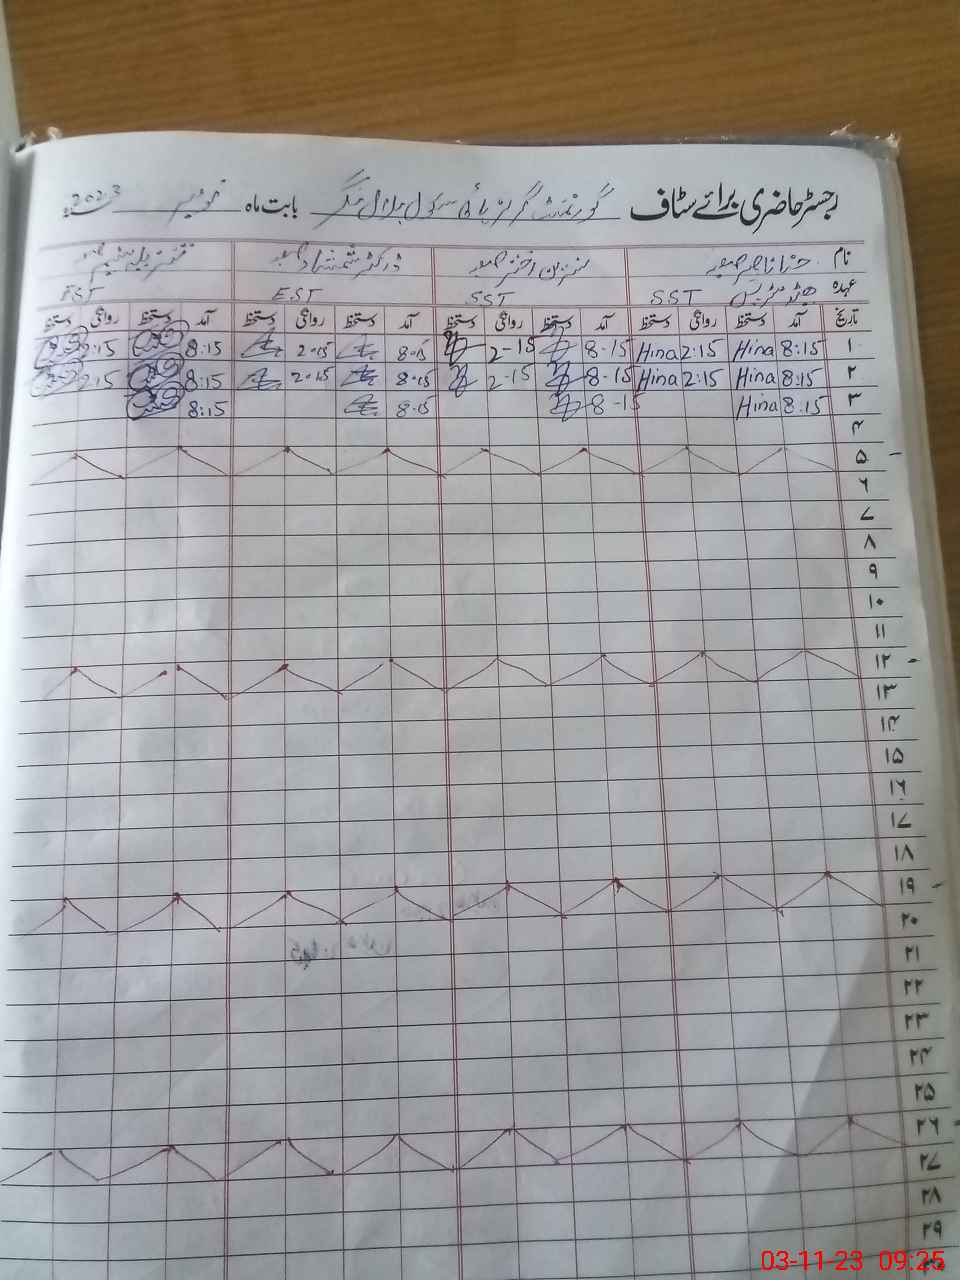 رجسٹر حاضری برائے سٹاف گورنمنٹ گرلز ہائی سکول بابت ماہ نومبر 2023
نام حنا ناصر صاحبہ نسرین اختر صاحبہ ڈاکٹر شمشاد صاحبہ
عہدہ ہیڈ مسٹریس SST SST EST EST
تاریخ آمد دستخط روانگی دستخط آمد دستخط روانگی دستخط آمد دستخط روانگی دستخط آمد دستخط روانگی دستخط
۱ 8:15 Hina 2:15 Hina 8-15 2-15 8-15 2-15 8:15 2:15
۲ 8:15 Hina 2:15 Hina 8-15 2-15 8-15 2-15 8:15 2:15
۳ 8:15 Hina 8-15 8-15 8:15
۴
۵
۶
۷
۸
۹
۱۰
۱۱
۱۲
۱۳
۱۴
۱۵
۱۶
۱۷
۱۸
۱۹
۲۰
۲۱
۲۲
۲۳
۲۴
۲۵
۲۶
۲۷
۲۸
۲۹
03-11-23 09:25